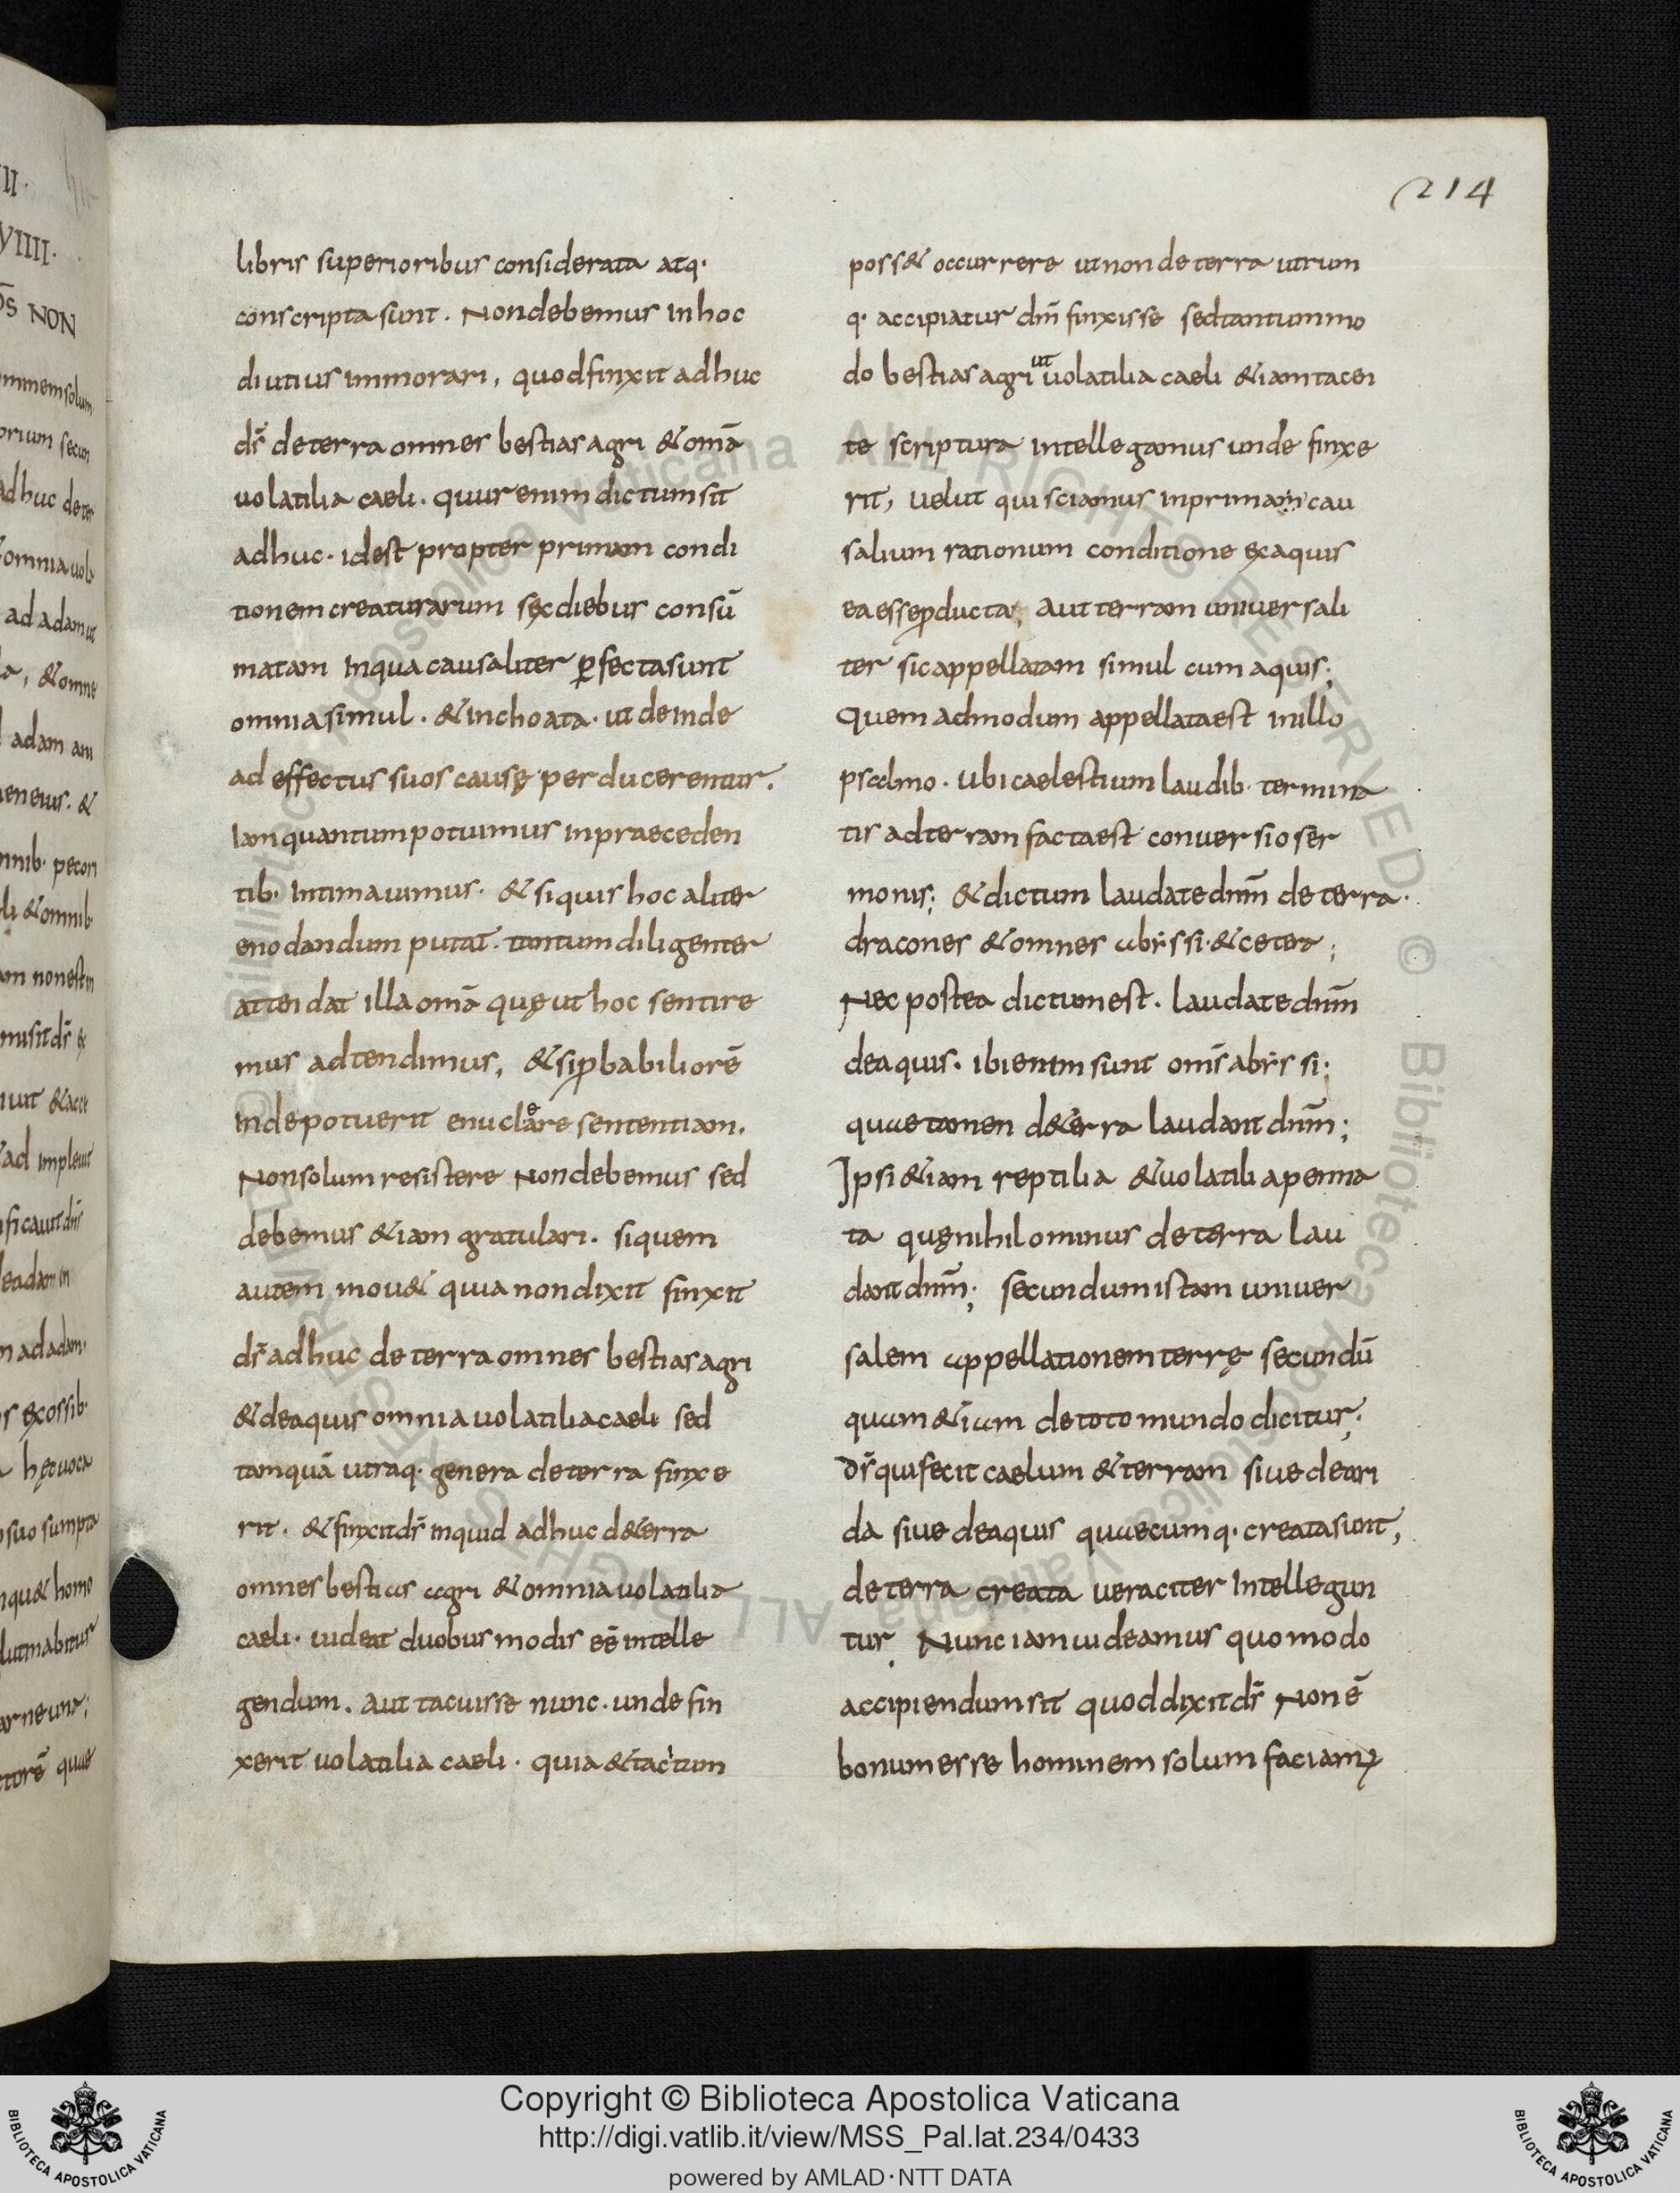 214
libris superioribus considerata atq·
conscripta sunt. Non debemus in hoc
diutius immorari, quod finxit adhuc
ds̄ de terra omnes bestias agri & om̄a
uolatilia caeli. quur enim dictum sit
adhuc· id est propter primam condi
tionem creaturarum sex diebus consū
matam in qua causaliter ꝑfecta sunt
omnia simul. & inchoata· ut deinde
ad effectus suos causę perducerentur.
Iam quantum potuimus in praeceden
tib· intimauimus· & si quis hoc aliter
enodandum putat. tantum diligenter
attendat illa om̄a quę ut hoc sentire
mus adtendimus, & si ꝓbabiliorē
inde potuerit enucleare sententiam.
Non solum resistere non debemus sed
debemus &iam gratulari. si quem
autem mou& quia non dixit finxit
ds̄ adhuc de terra omnes bestias agri
& de aquis omnia uolatilia caeli sed
tamquā utraq· genera de terra finxe
rit. & finxit ds̄ inquid adhuc de terra
omnes bestias agri & omnia uolatilia
caeli· uideat duobus modis eē intelle
gendum. aut tacuisse nunc· unde fin
xerit uolatilia caeli· quia & tacitum
poss& occurrere ut non de terra utrum
q· accipiatur dm̄ finxisse sed tantummo
do bestias agri ut uolatilia caeli &iam tacen
te scriptura intellegamus unde finxe
rit, uelut qui sciamus in prima cau
salium rationum conditione ex aquis
ea esse ꝓducta; aut terram uniuersali
ter sic appellatam simul cum aquis;
Quem admodum appellata est in illo
psalmo· ubi caelestium laudib· termina
tis ad terram facta est conuersio ser
monis; & dictum laudate dnm̄ de terra·
dracones & omnes abẏssi· & cetera;
Nec postea dictum est. laudate dnm̄
de aquis. ibi enim sunt oms̄ abẏssi;
quae tamen de terra laudant dnm̄;
Ipsi &iam reptilia & uolatilia penna
ta quę nihilominus de terra lau
dant dnm̄; secundum istam uniuer
salem appellationem terrę secundū
quam &iam de toto mundo dicitur;
Ds̄ qui fecit caelum & terram siue de ari
da siue de aquis quaecumq· creata sunt,
de terra creata ueraciter intellegun
tur. Nunc iam uideamus quomodo
accipiendum sit quod dixit ds̄ Non ē
bonum esse hominem solum faciamꝰ
Copyright © Biblioteca Apostolica Vaticana
http://digi.vatlib.it/view/MSS_Pal.lat.234/0433
powered by AMLAD·NTT DATA
BIBLIOTECA APOSTOLICA VATICANA
BIBLIOTECA APOSTOLICA VATICANA